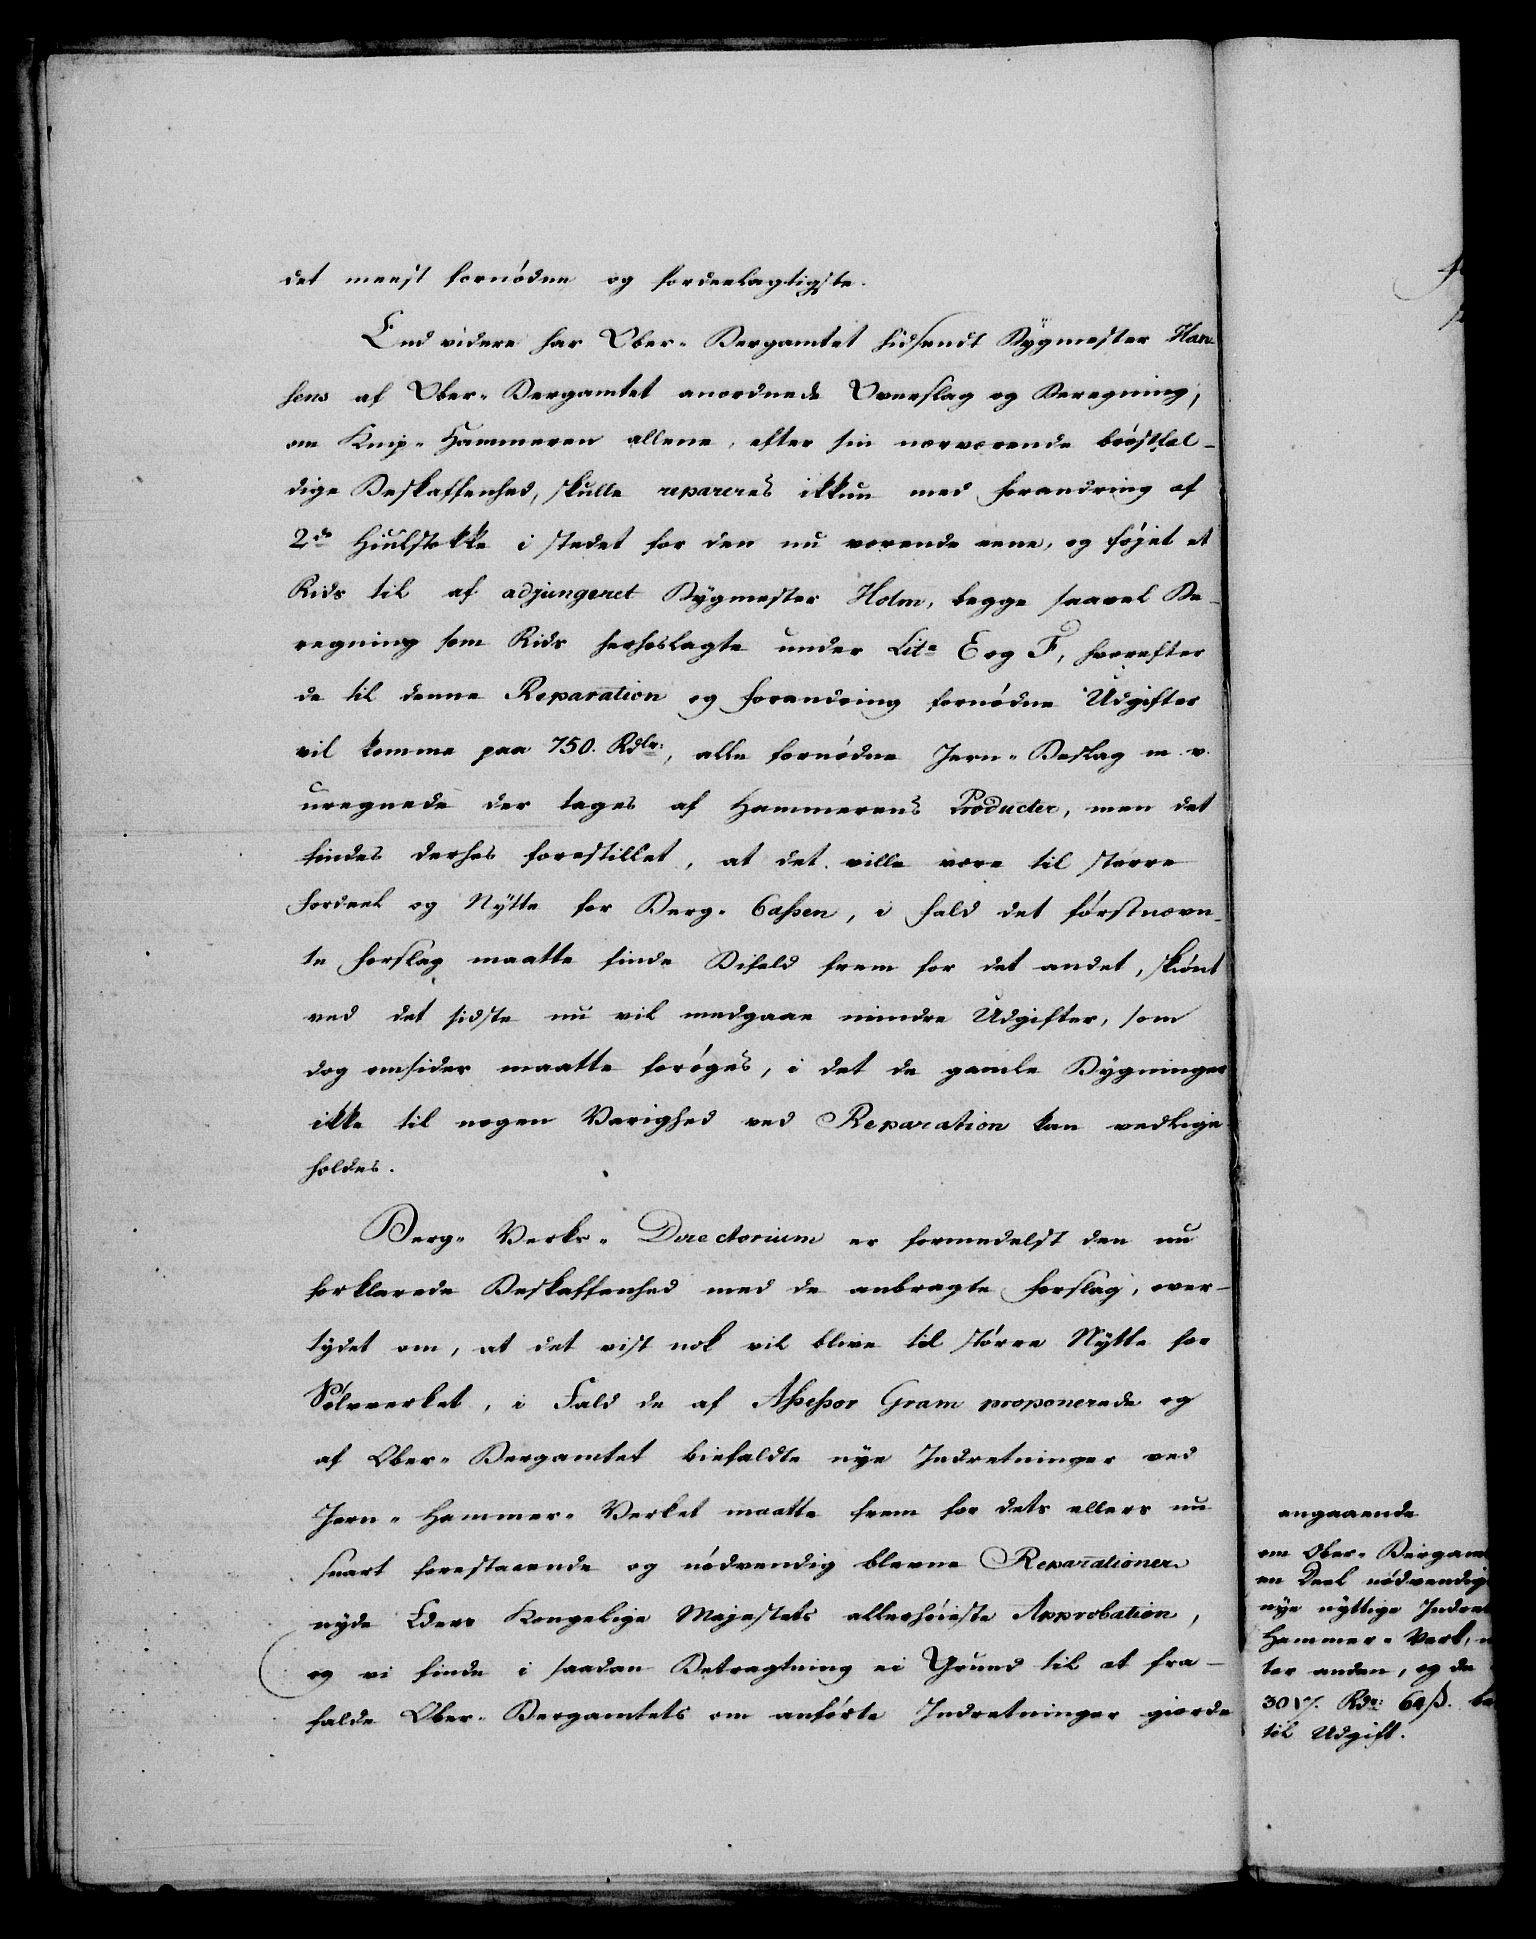 det meest fornødne og fordeelagtigste.
End videre har Ober-Bergamtet hidsendt Bygmester Han-
sens af Ober-Bergamtet anordnede Overslag og Beregning,
om Knip-Hammeren allene, efter sin nærværende brøstfæl-
dige Beskaffenhed, skulle repareres ikkun med Forandring af
2de Hiulstokke i stedet for den nu værende eene, og føjet et
Rids til af adjungeret Bygmester Holm, begge saavel Be-
regning som Rids herhoslagte under Lit: E og F, hvorefter
de til denne Reparation og Forandring fornødne Udgifter
vil komme paa 750. Rdlr:, alle fornødne Jern-Beslag m. v.
uregnede der tages af Hammerens Producter, men det
findes derhos forestillet, at det ville være til større
Fordeel og Nytte for Berg-Cassen, i fald det førstnævn-
te Forslag maatte finde Bifald frem for det andet, skiønt
ved det sidste nu vil medgaae mindre Udgifter, som
dog omsider maatte forøges, i det de gamle Bygninger
ikke til nogen Varighed ved Reparation kan vedlige
holdes.
Berg-Verks-Directorium er formedelst den nu
forklarede Beskaffenhed med de anbragte Forslag, over-
tydet om, at det vist nok vil blive til større Nytte for
Sølvverket, i Fald de af Assessor Gram proponerede og
af Ober-Bergamtet biefaldte nye Indretninger ved
Jern-Hammer-Verket maatte frem for dets ellers nu
snart forestaaende og nødvendig blevne Reparationer
nyde Eders Kongelige Majestets allerhøieste Approbation,
og vi finde i saadan Betragtning ei Grund til at fra-
falde Ober-Bergamtets om anførte Indretninger giorde
angaaende
om Ober-Bergam
en Deel nødvendig
nye nyttige Indret
Hammer-Verk,
ter anden, og de
Rdr: 64 ß.
til Udgift.